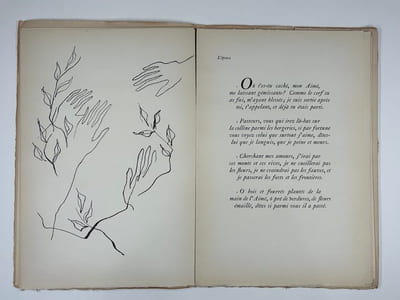 L'épouse
Où t'es-tu caché, mon Aimé,
me laissant gémissante? Comme le cerf tu
as fui, m'ayant blessée; je suis sortie après
toi, t'appelant, et déjà tu étais parti.
Pasteurs, vous qui irez là-bas sur
la colline parmi les bergeries, si par fortune
vous voyez celui que surtout j'aime, dites-
lui que je languis, que je peine et meurs.
Cherchant mes amours, j'irai par
ces monts et ces rives, je ne cueillerai pas
les fleurs, je ne craindrai pas les fauves, et
je passerai les forts et les frontières.
O bois et fourrés plantés de la
main de l'Aimé, ô pré de verdures, de fleurs
émaillé, dites si parmi vous il a passé.